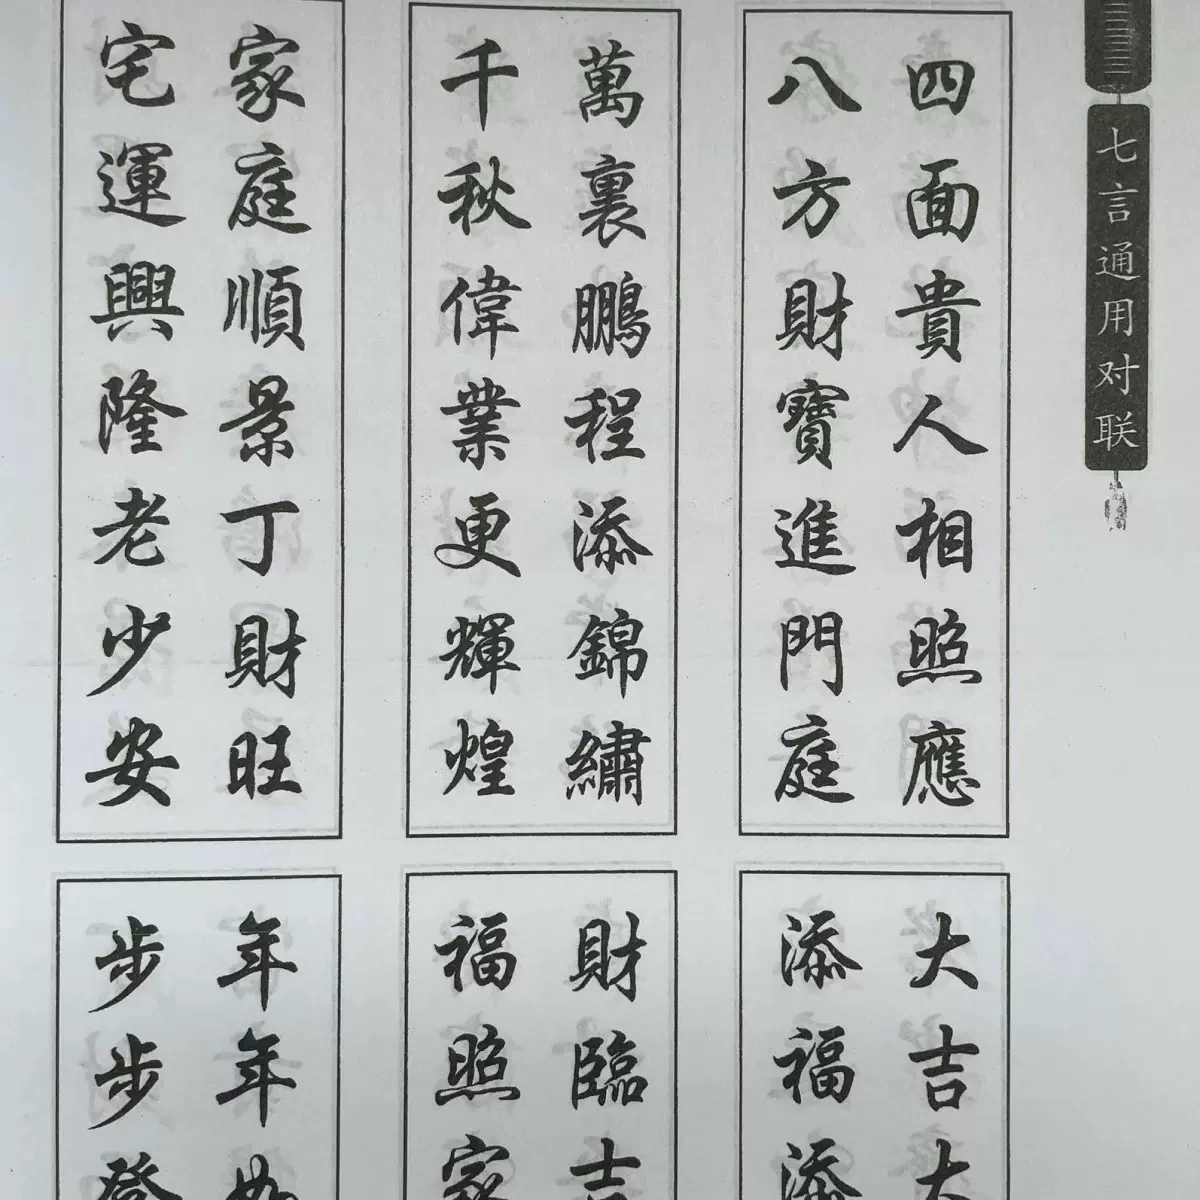 七言通用对联
四面貴人相照應
八方財寶進門庭
萬裏鵬程添錦繡
千秋偉業更輝煌
家庭順景丁財旺
宅運興隆老少安
大吉大
添福添
財臨吉
福照家
年年如
步步登